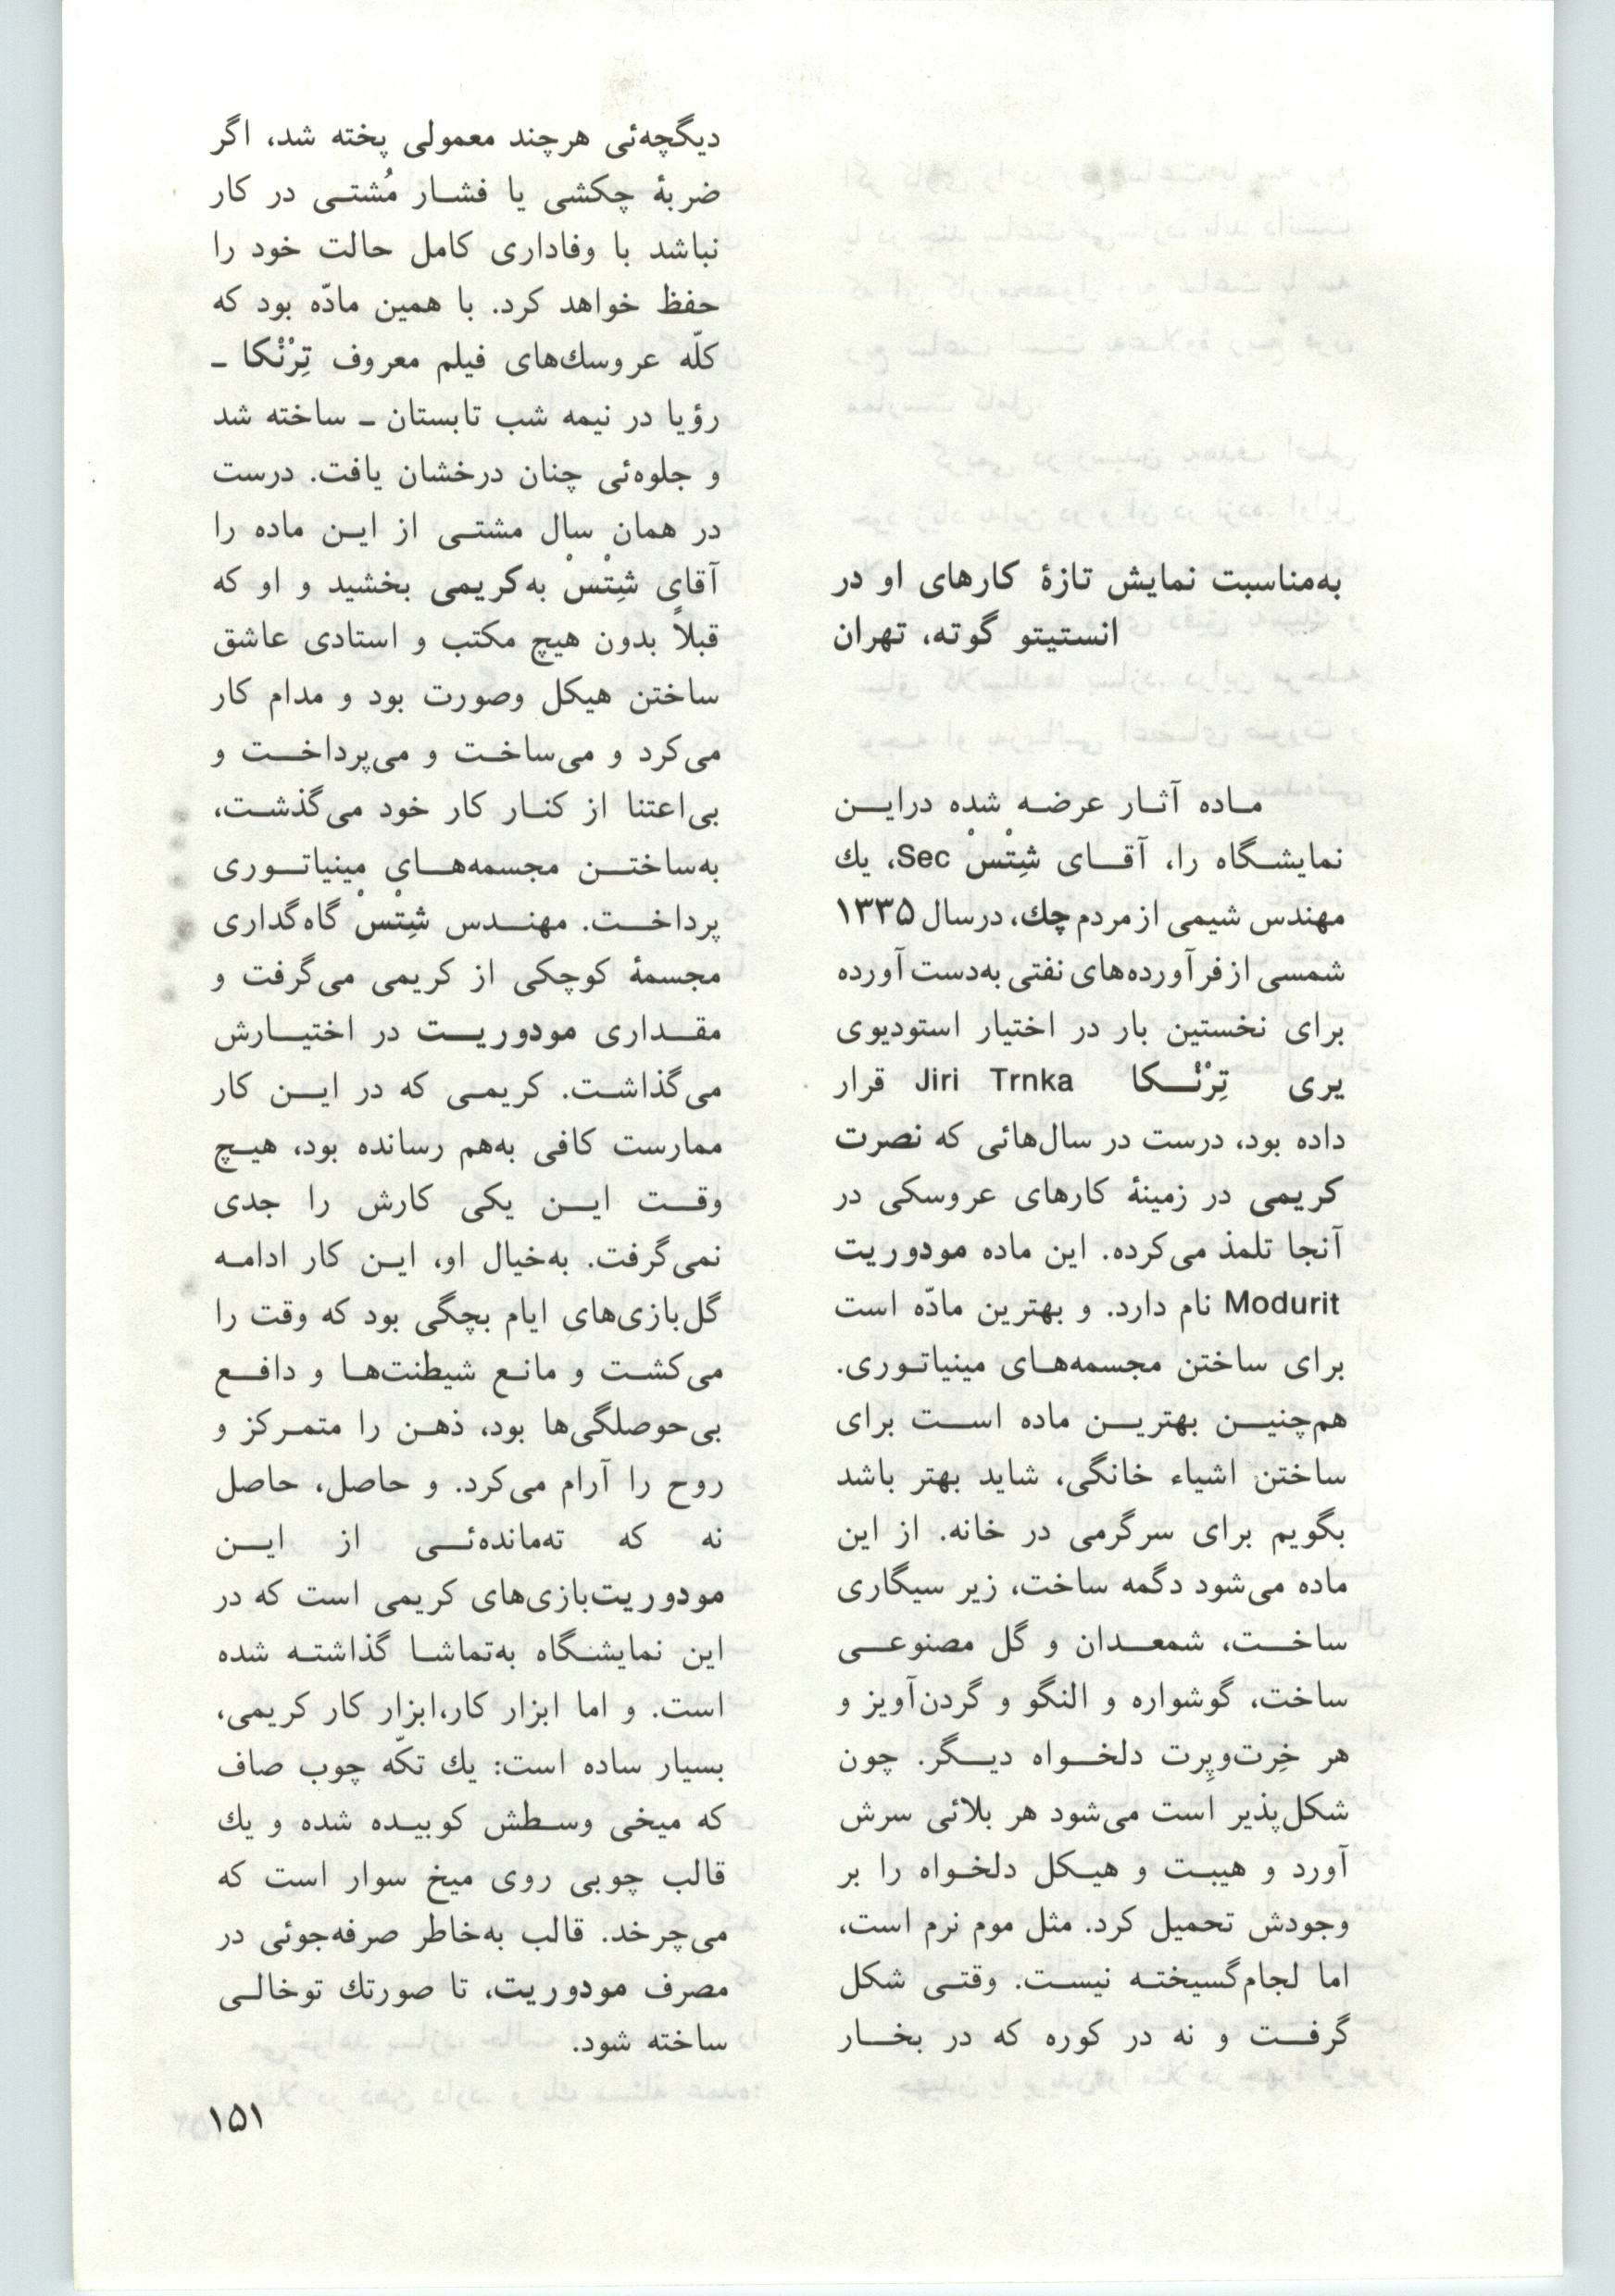 به‌مناسبت نمایش تازهٔ کارهای او در
انستیتو گوته، تهران
ماده آثار عرضه شده دراین
نمایشگاه را، آقای شِتْسْ Sec، یك
مهندس شیمی از مردم چك، درسال ۱۳۳۵
شمسی از فرآورده‌های نفتی به‌دست آورده
برای نخستین بار در اختیار استودیوی
یری تِرْنْکا Jiri Trnka قرار
داده بود، درست در سال‌هائی که نصرت
کریمی در زمینهٔ کارهای عروسکی در
آنجا تلمذ می‌کرده. این ماده مودوریت
Modurit نام دارد. و بهترین مادّه است
برای ساختن مجسمه‌های مینیاتوری.
هم‌چنین بهترین ماده است برای
ساختن اشیاء خانگی، شاید بهتر باشد
بگویم برای سرگرمی در خانه. از این
ماده می‌شود دگمه ساخت، زیر سیگاری
ساخت، شمعدان و گل مصنوعی
ساخت، گوشواره و النگو و گردن‌آویز و
هر خِرت‌وپِرت دلخواه دیگر. چون
شکل‌پذیر است می‌شود هر بلائی سرش
آورد و هیبت و هیکل دلخواه را بر
وجودش تحمیل کرد. مثل موم نرم است،
اما لجام‌گسیخته نیست. وقتی شکل
گرفت و نه در کوره که در بخار
دیگچه‌ئی هرچند معمولی پخته شد، اگر
ضربهٔ چکشی یا فشار مُشتی در کار
نباشد با وفاداری کامل حالت خود را
حفظ خواهد کرد. با همین مادّه بود که
کلّه عروسك‌های فیلم معروف تِرْنْکا ـ
رؤیا در نیمه شب تابستان ـ ساخته شد
و جلوه‌ئی چنان درخشان یافت. درست
در همان سال مشتی از این ماده را
آقای شِتْسْ به‌کریمی بخشید و او که
قبلاً بدون هیچ مکتب و استادی عاشق
ساختن هیکل وصورت بود و مدام کار
می‌کرد و می‌ساخت و می‌پرداخت و
بی‌اعتنا از کنار کار خود می‌گذشت،
به‌ساختن مجسمه‌های مینیاتوری
پرداخت. مهندس شِتْسْ گاه‌گداری
مجسمهٔ کوچکی از کریمی می‌گرفت و
مقداری مودوریت در اختیارش
می‌گذاشت. کریمی که در این کار
ممارست کافی به‌هم رسانده بود، هیچ
وقت این یکی کارش را جدی
نمی‌گرفت. به‌خیال او، این کار ادامه
گل‌بازی‌های ایام بچگی بود که وقت را
می‌کشت و مانع شیطنت‌ها و دافع
بی‌حوصلگی‌ها بود، ذهن را متمرکز و
روح را آرام می‌کرد. و حاصل، حاصل
نه که ته‌مانده‌ئی از این
مودوریت‌بازی‌های کریمی است که در
این نمایشگاه به‌تماشا گذاشته شده
است. و اما ابزار کار،ابزار کار کریمی،
بسیار ساده است: یك تکّه چوب صاف
که میخی وسطش کوبیده شده و یك
قالب چوبی روی میخ سوار است که
می‌چرخد. قالب به‌خاطر صرفه‌جوئی در
مصرف مودوریت، تا صورتك توخالی
ساخته شود.
۱۵۱